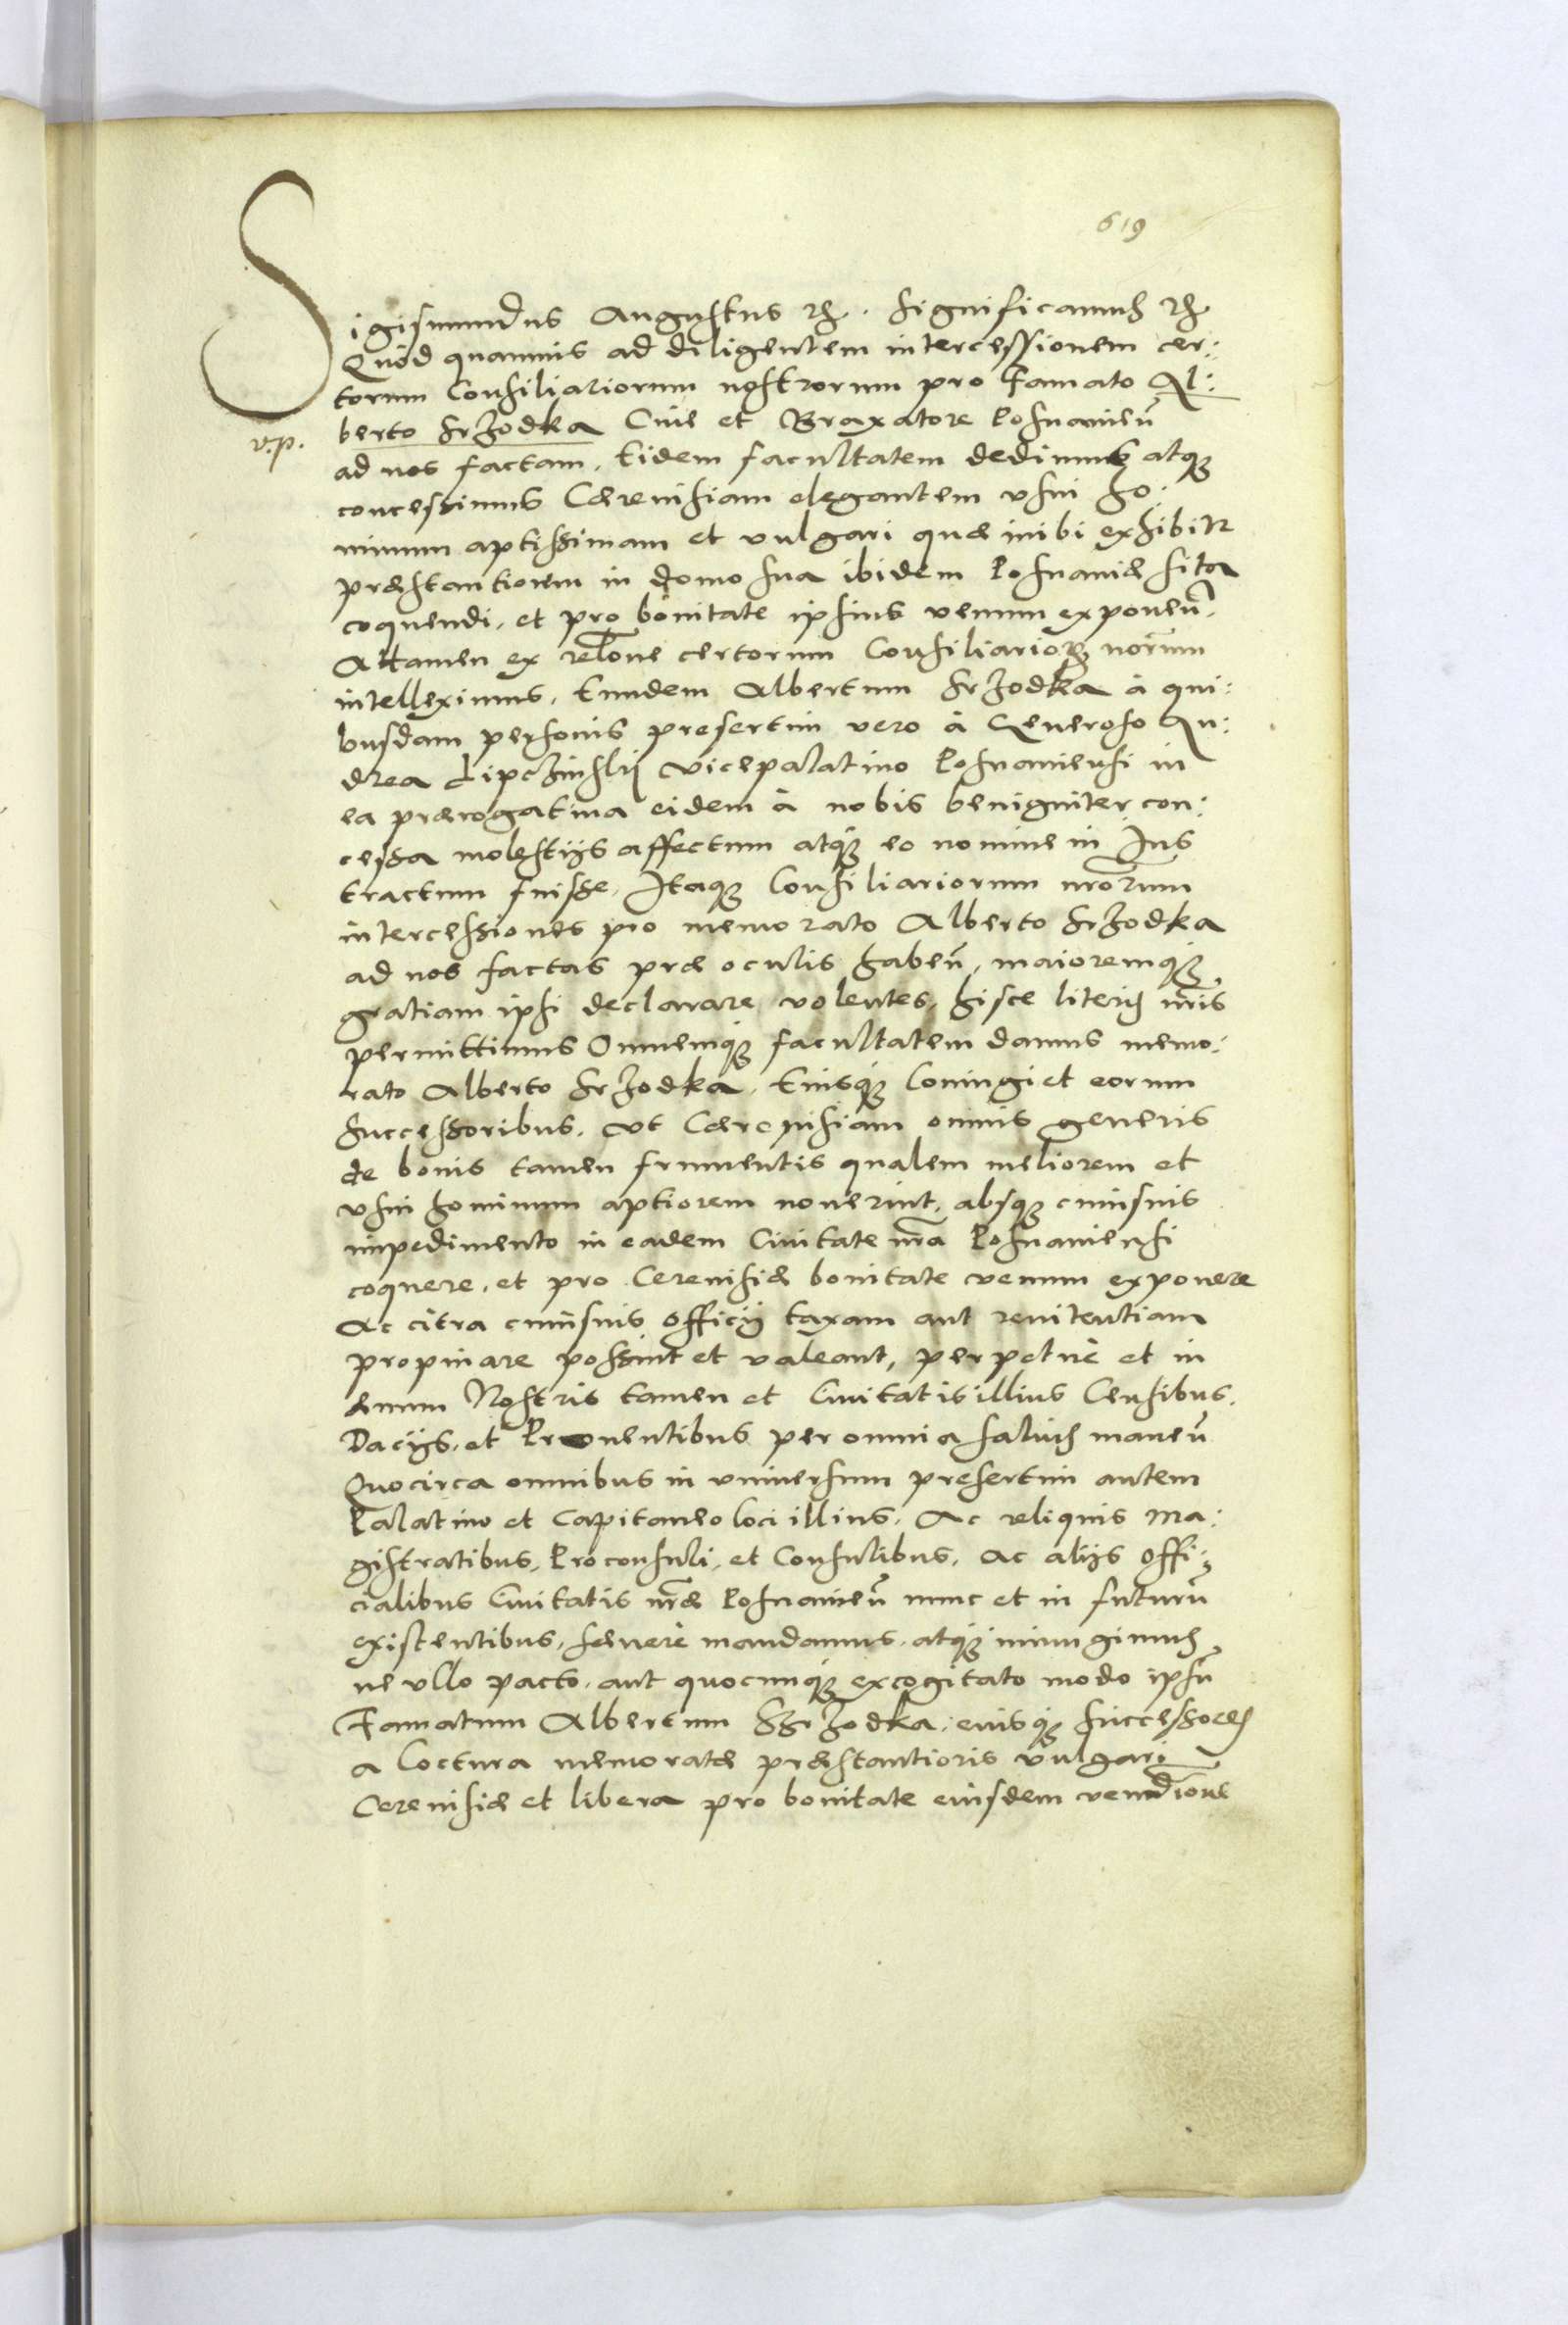 619
Sigismundus Augustus etc. Significamus etc.
Quod quamuis ad diligentem intercessionem cer:
torum Consiliariorum nostrorum pro Famato Al:
v.p. berto Srzodka Ciue et Braxatore Posnanien̄
ad nos factam, Eidem facultatem dedimus atq3
concessimus Cæreuisiam elegantem vsui ho:
minum aptissimam et vulgari quæ inibi exhibitr
præstantiorem in domo sua ibidem Posnaniæ sita
coquendi, et pro bonitate ipsius venum exponen̄.
Attamen ex relōne certorum Consiliarior̄ nōrum
intelleximus, Eundem Albertum Srzodka à qui:
busdam personis presertim vero à Generoso An:
drea Lipczinskij Vicepalatino Posnaniensi in
ea prærogatiua eidem à nobis benigniter con:
cessa molestijs affectum atq3 eo nomine in Ius
tractum fuisse, Itaq3 Consiliariorum nr̄orum
intercessiones pro memorato Alberto Srzodka
ad nos factas præ oculis haben̄, maioremq3
gratiam ipsi declarare volentes, hisce literis nr̄is
permittimus Omnemq3 facultatem damus memo:
rato Alberto Srzodka, Eiusq3 Coniugi et eorum
Successoribus, vt Cæreuisiam omnis generis
de bonis tamen frumentis qualem meliorem et
vsui hominum aptiorem nouerint, absq3 cuiusuis
impedimento in eadem Ciuitate nr̄a Posnaniensi
coquere, et pro Cereuisiæ bonitate venum exponere
Ac citra cuiusuis officij taxam aut renitentiam
propinare possint et valeant, perpetuè et in
æuum Nostris tamen et Ciuitatis illius Censibus,
Dacijs, et Prouentibus per omnia saluis manen̄
Quocirca omnibus in vniuersum presertim autem
Palatino et Capitaneo loci illius, Ac reliquis Ma:
gistratibus, Proconsuli, et Consulibus, ac alijs offi:
cialibus Ciuitatis nr̄æ Posnanien̄ nunc et in futurū
existentibus, seuere mandamus, atq3 iniungimus
ne vllo pacto, aut quocunq3 excogitato modo ipsū
Famatum Albertum Srzodka, eiusq3 Successores
a Coctura memoratæ præstantioris vulgari
Cereuisiæ et libera pro bonitate eiusdem vendīone